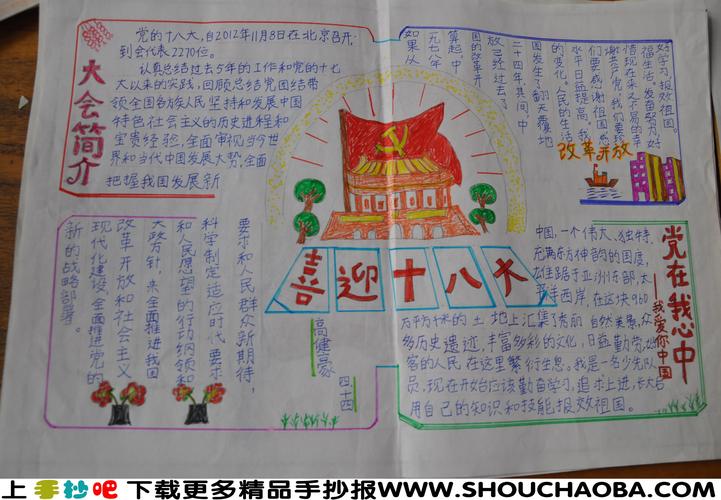 大会简介
党的十八大,自2012年11月8日在北京召开,
到会代表2270位。
认真总结过去5年的工作和党的十七
大以来的实践,回顾总结党团结带
领全国各族人民坚持和发展中国
特色社会主义的历史进程和
宝贵经验,全面审视当今世
界和当代中国发展大势,全面
把握我国发展新
要求和人民群众新期待,
科学制定适应时代要求
和人民愿望的行动纲领和
大政方针,来全面推进我国
改革开放和社会主义
现代化建设、全面推进党的
新的战略部署。
如果从
一九七八年
算起中
国的改革开
放已经过去了
三十四年其间,中
国发生了翻天覆地
的变化。人民的生活
水平日益提高。我
们要感谢祖国感
谢共产党,我们要珍
惜现在来之不易的幸
福生活,发奋努力,好
好学习,报效祖国。
改革开放
喜迎十八大
高健豪
四十四
党在我心中
——我爱你中国
中国,一个伟大、独特、
充满东方神韵的国度,
她雄踞于亚洲东部,太
平洋西岸,在这块960
万平方千米的土地上汇集了秀丽自然美景,众
多历史遗迹,丰富多彩的文化,日益勤劳,她
客的人民在这里繁衍生息。我是一名少先队
员,现在开始应该勤奋学习,追求上进,长大后
用自己的知识和技能,报效祖国。
上手抄吧 下载更多精品手抄报WWW.SHOUCHAOBA.COM